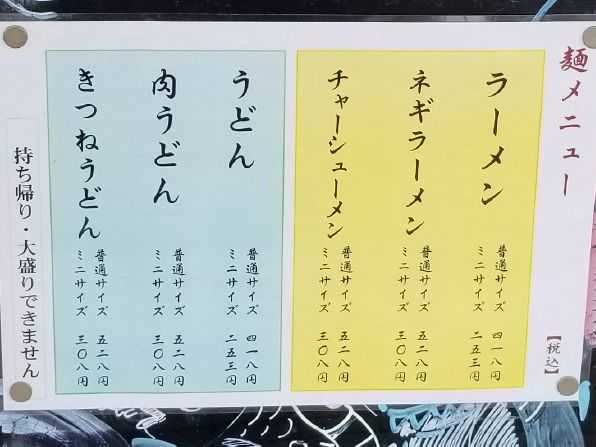 麺メニュー
【税込】
ラーメン
普通サイズ 四一八円
ミニサイズ 二五三円
ネギラーメン
普通サイズ 五二八円
ミニサイズ 三〇八円
チャーシューメン
普通サイズ 五二八円
ミニサイズ 三〇八円
うどん
普通サイズ 四一八円
ミニサイズ 二五三円
肉うどん
普通サイズ 五二八円
ミニサイズ 三〇八円
きつねうどん
普通サイズ 五二八円
ミニサイズ 三〇八円
持ち帰り・大盛りできません